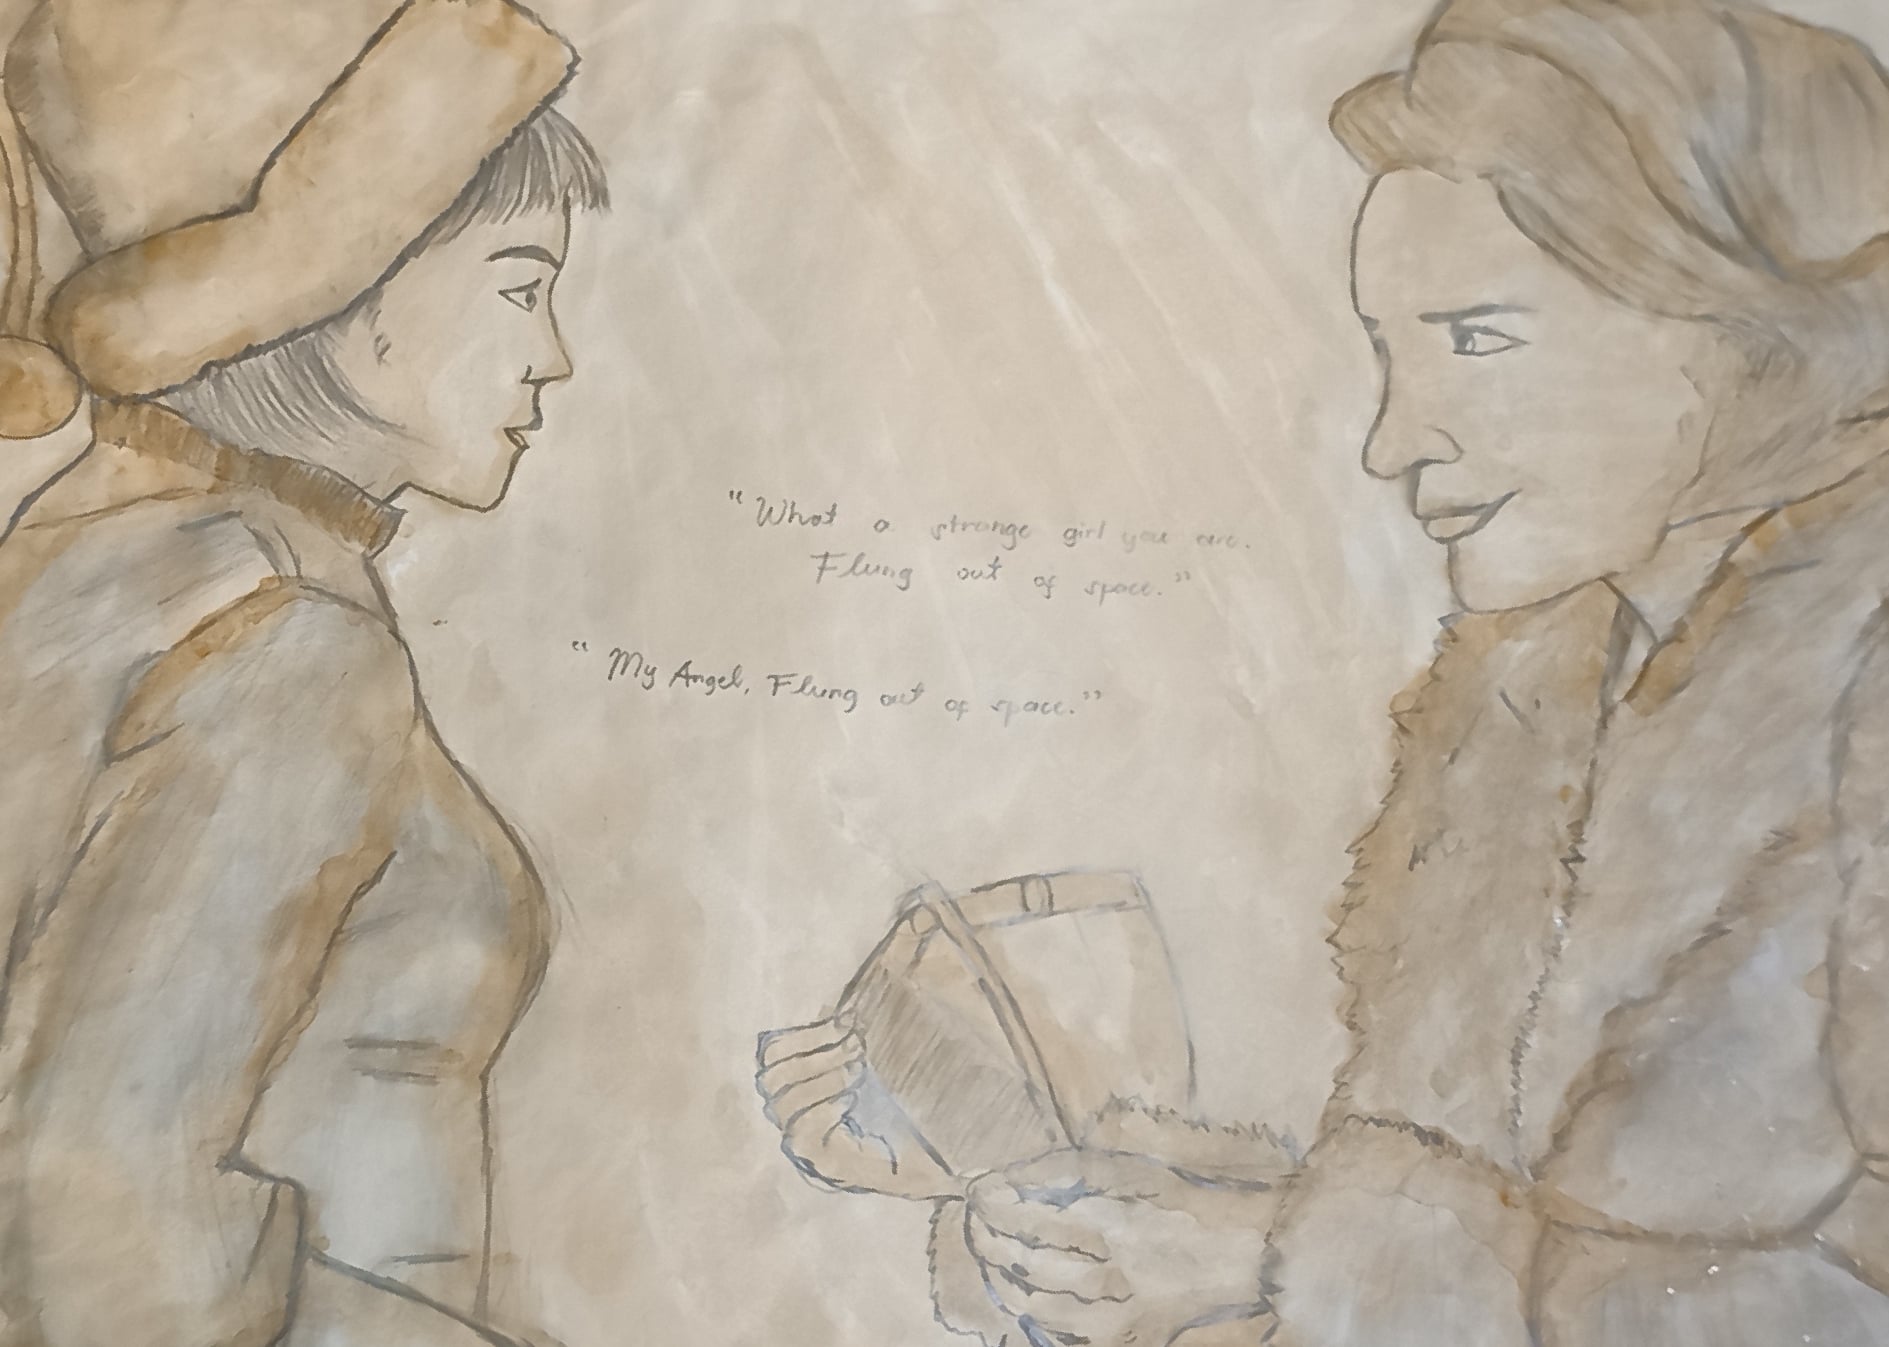 "What a strange girl you are.
Flung out of space."
"My Angel, Flung out of space."